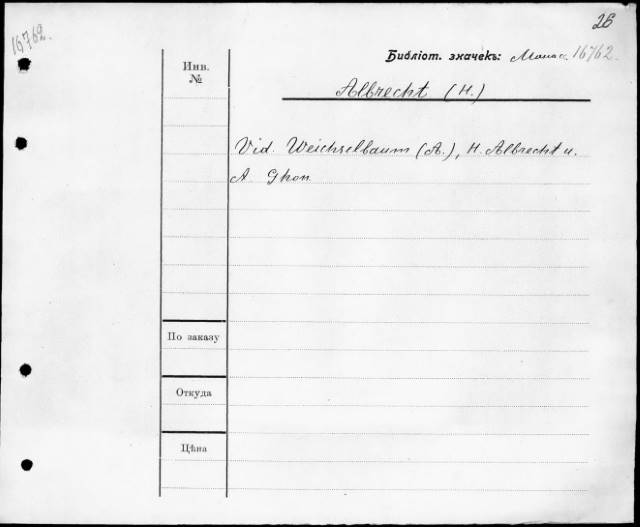 26
16762.
Инв.
№
Библіот. значекъ: 16762.
Albrecht (H.)
Vid. Weichselbaum (A.), H. Albrecht u.
A. Ghon
По заказу
Откуда
Цѣна